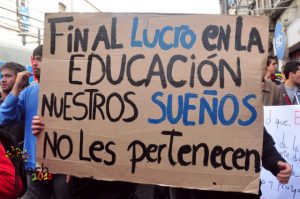 FINAL LUCRO EN LA
EDUCACIÓN
NUESTROS SUEÑOS
NO LES PERTENECEN